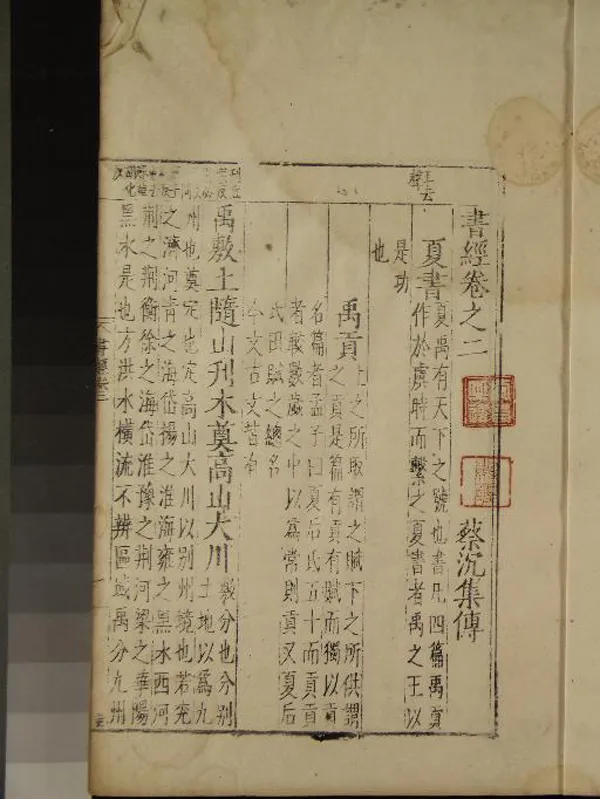 書經卷之二
蔡沉集傳
夏書夏禹有天下之號也書凡四篇禹貢
作於虞時而繫之夏書者禹之王以
是功
也
禹貢上之所取謂之賦下之所供謂
之貢是篇有貢有賦而獨以貢
名篇者孟子曰夏后氏五十而貢貢
者較數歲之中以爲常則貢又夏后
氏田賦之總名
今文古文皆有
禹敷土隨山刊木奠高山大川敷分也分别
土地以爲九
州也奠定也定高山大川以别州境也若兖
之濟河青之海岱揚之淮海雍之黑水西河
荆之荆衡徐之海岱淮豫之荆河梁之華陽
黑水是也方洪水橫流不辨區域禹分九州